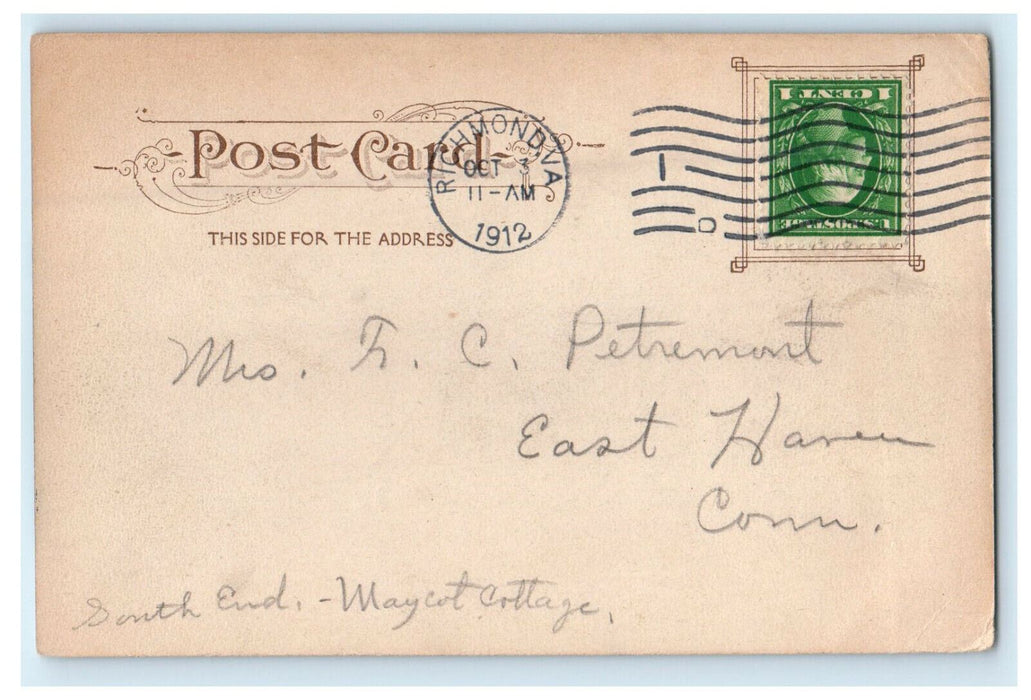 Post Card
THIS SIDE FOR THE ADDRESS
RICHMOND, VA.
OCT 3
11-AM
1912
1 CENT 1
U.S. POSTAGE
1
D
Mrs. F. C. Petremont
East Haven
Conn.
South End. - Maycot Cottage.